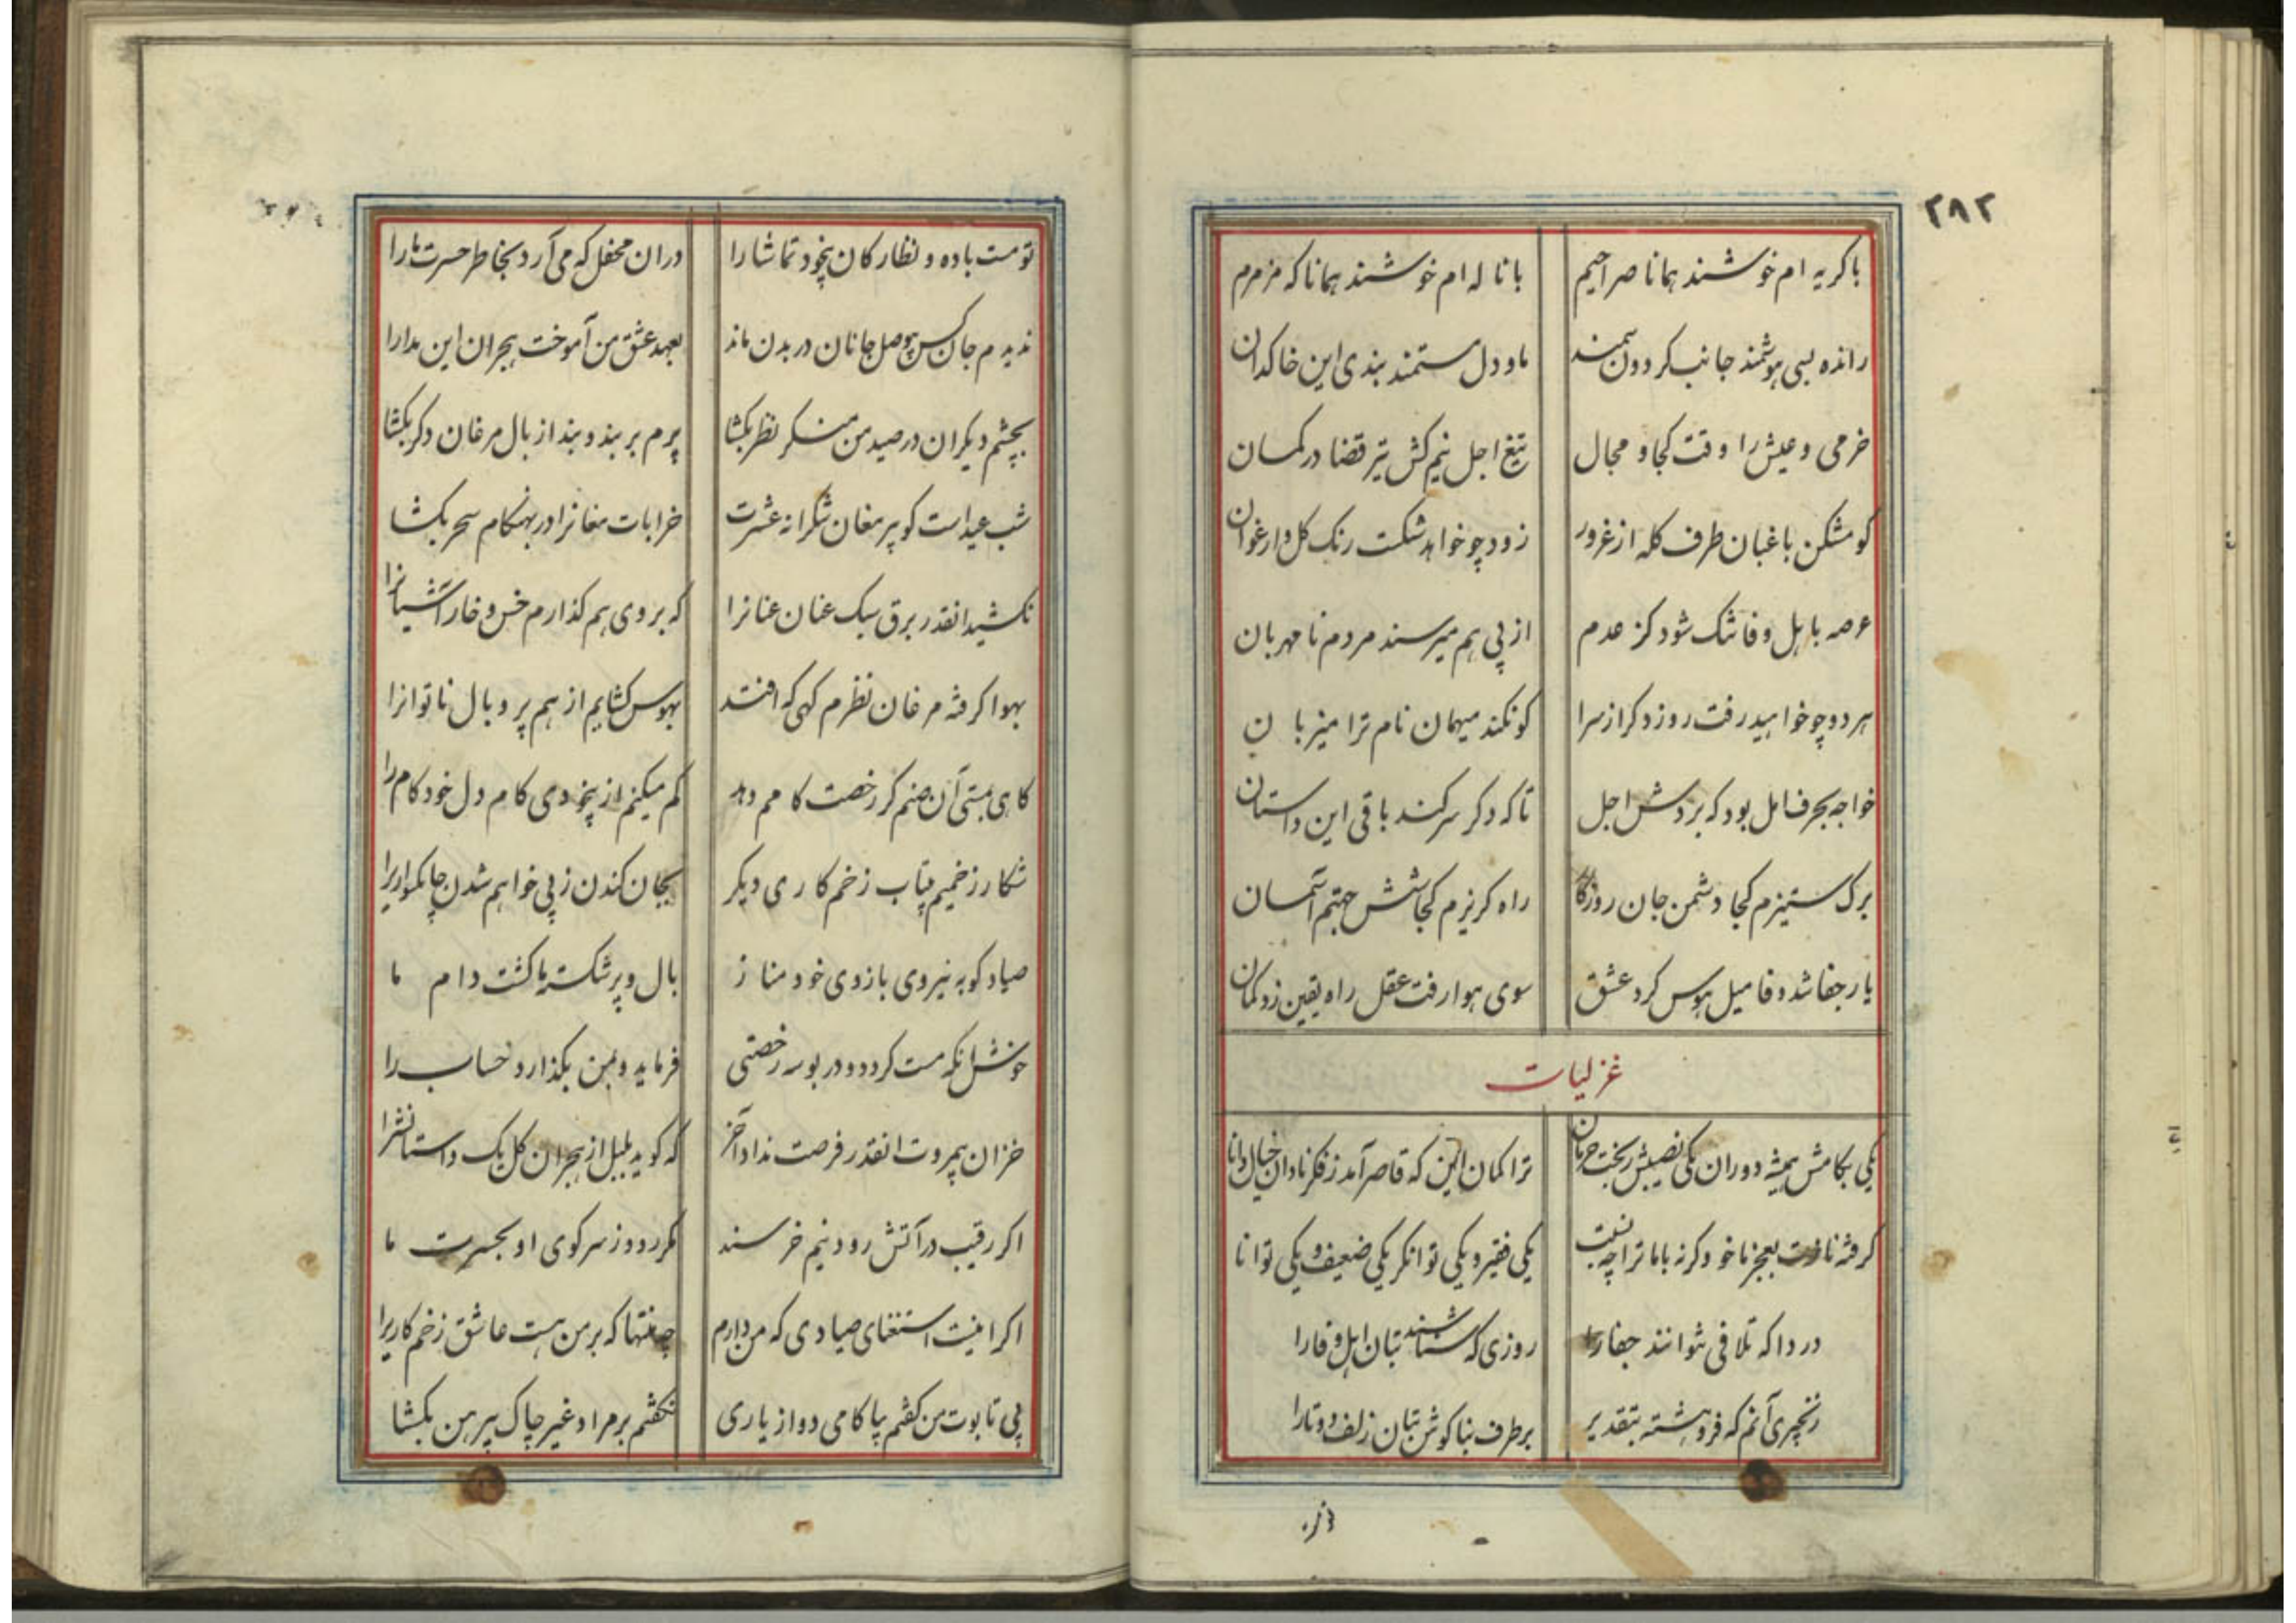 ۲۸۲
با کریه ام خوشند همانا صراحیم با ناله ام خوشند همانا که مزمرم
رانده بسی هوشمند جانب کردون سمند ما و دل مستمند بندی این خاکدان
خرمی و عیش را وقت کجا و مجال تیغ اجل نیم کش تیر قضا در کمان
کو مشکن باغبان طرف کله از غرور زود چو خواهد شکست رنک کل و ارغوان
عرصه باهل وفا تنک شود کز عدم از پی هم میرسند مردم نامهربان
هر دو چو خواهید رفت روز دکر از سرا کو نکند میهمان نام ترا میزبان
خواجه بحرف امل بود که بردش اجل تا که دکر سر کند باقی این داستان
برک ستیزم کجا دشمن جان روزکار راه کریزم کجا شش جهتم آسمان
یار جفا شد وفا میل هوس کرد عشق سوی هوا رفت عقل راه یقین زد کمان
غزلیات
یکی بکامش همیشه دوران یکی نصیبش ز بخت حرمان ترا کمان این که قاصر آمد ز فکر نادان خیال دانا
کرفته نازت بعجز ما خو و کرنه با ما ترا چه نسبت یکی فقیر و یکی توانکر یکی ضعیف و یکی توانا
دردا که تلافی نتوانند جفا را روزی که شناسند بتان اهل وفا را
زنجیری آنم که فروهشته بتقدیر بر طرف بناکوش بتان زلف دوتا را
تو مست باده و نظارکان بیخود تماشا را دران محفل که می آرد بخاطر حسرت ما را
ندیدم جان کس بیوصل جانان در بدن ماند بعهد عشق من آموخت هجران این مدارا
بچشم دیکران در صید من منکر نظر بکشا پرم بر بند و بند از بال مرغان دکر بکشا
شب عید است کو پیر مغان شکرانه عشرت خرابات مغانرا در بهنکام سحر بکشا
نکشید انقدر برق سبک عنان عنانرا که بروی هم کذارم خس و خار آشیانرا
بهوا کرفته مرغان نظرم کهی که افتد بهوس کشایم از هم پر و بال ناتوانرا
کاهی بمستی آن صنم کر رخصت کامم دهد کم میکنم از بیخودی کام دل خود کام را
شکار زخمیم بیتاب زخم کاری دیکر بجان کندن ز پی خواهم شدن چابکسواریرا
صیاد کو به نیروی بازوی خود مناز بال و پر شکسته ما کشت دام ما
خوشل انکه مست کردد و در بوسه رخصتی فرماید و بمن بکذارد حساب را
خزان بیمروت انقدر فرصت نداد آخر که کوید بلبل از هجران کل یک داستانشرا
اکر رقیب در آتش رود نیم خرسند مکر رود ز سر کوی او بحسرت ما
اکر اینست استغنای صیادی که من دارم چه منتها که بر من هست عاشق زخم کاریرا
پی تابوت من کفتم بیا کامی دو از یاری نکفتم بر مراد غیر چاک پیرهن بکشا